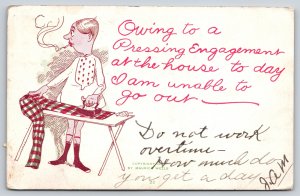 Owing to a
Pressing Engagement
at the house to day
I am unable to
go out
Do not work
overtime-
How much do
you get a day
J.A.M
COPYRIGHT
BY